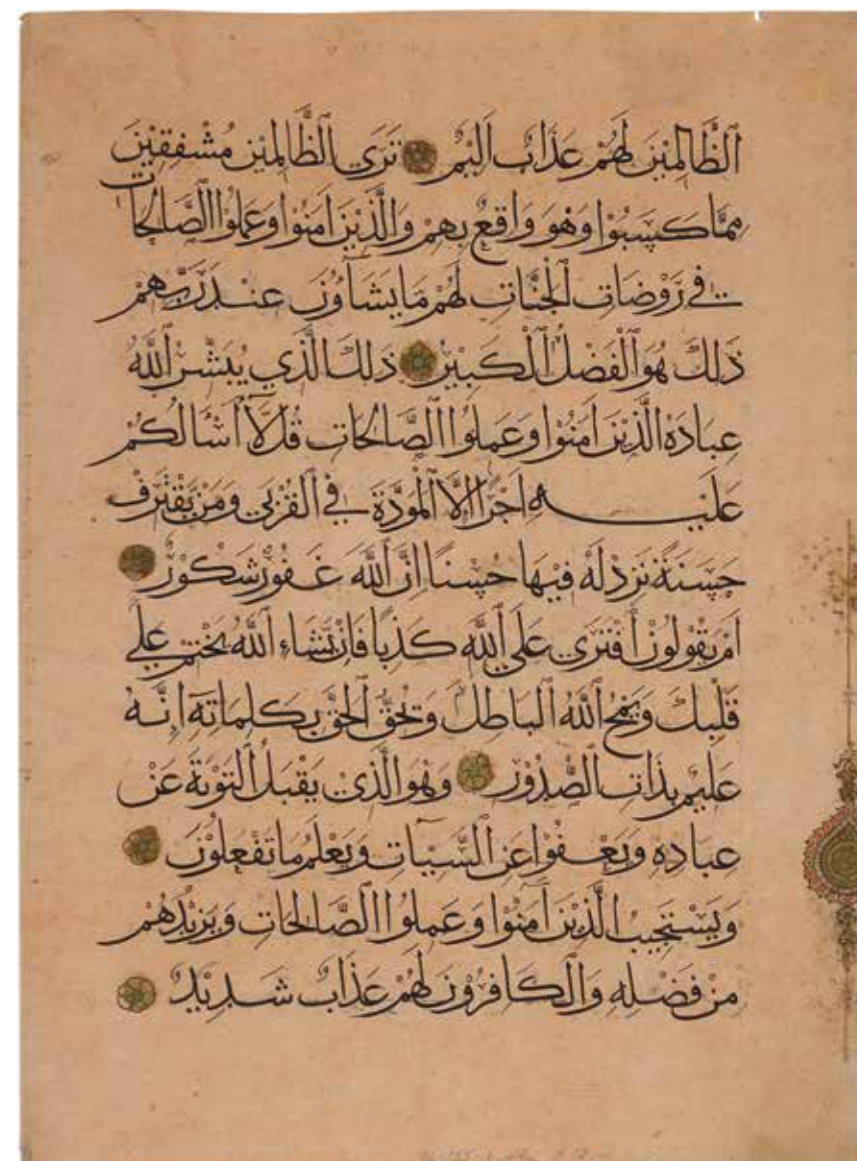 الظَّالِمِيْنَ لَهُمْ عَذَابٌ اَلِيْمٌ تَرَي الظَّالِمِيْنَ مُشْفِقِيْنَ
مِمَّا كَسَبُوْا وَهُوَ وَاقِعٌ بِهِمْ وَالَّذِيْنَ اٰمَنُوْا وَعَمِلُوْا الصَّالِحَاتِ
فِي رَوْضَاتِ الْجَنَّاتِ لَهُمْ مَا يَشَآوُنَ عِنْدَ رَبِّهِمْ
ذَلِكَ هُوَ الْفَضْلُ الْكَبِيْرُ ذَلِكَ الَّذِي يُبَشِّرُ اللَّهُ
عِبَادَهُ الَّذِيْنَ اٰمَنُوْا وَعَمِلُوْا الصَّالِحَاتِ قُلْ لَّآ اَسْالُكُمْ
عَلَيْهِ اَجْرًا اِلَّا الْمَوَدَّةَ فِي الْقُرْبَي وَمَنْ يَقْتَرِفْ
حَسَنَةً نَزِدْ لَهُ فِيْهَا حُسْنًا اِنَّ اللَّهَ غَفُوْرٌ شَكُوْرٌ
اَمْ يَقُوْلُوْنَ افْتَرَي عَلَي اللَّهِ كَذِبًا فَاِنْ يَّشَاءِ اللَّهُ يَخْتِمْ عَلَي
قَلْبِكَ وَيَمْحُ اللَّهُ الْبَاطِلَ وَيُحِقُّ الْحَقَّ بِكَلِمَاتِهٓ اِنَّهُ
عَلِيْمٌ بِذَاتِ الصُّدُوْرِ وَهُوَ الَّذِيْ يَقْبَلُ التَّوْبَةَ عَنْ
عِبَادِهِ وَيَعْفُوْا عَنِ السَّيِّاٰتِ وَيَعْلَمُ مَا تَفْعَلُوْنَ
وَيَسْتَجِيْبُ الَّذِيْنَ اٰمَنُوْا وَعَمِلُوْا الصَّالِحَاتِ وَيَزِيْدُهُمْ
مِنْ فَضْلِهِ وَالْكَافِرُوْنَ لَهُمْ عَذَابٌ شَدِيْدٌ